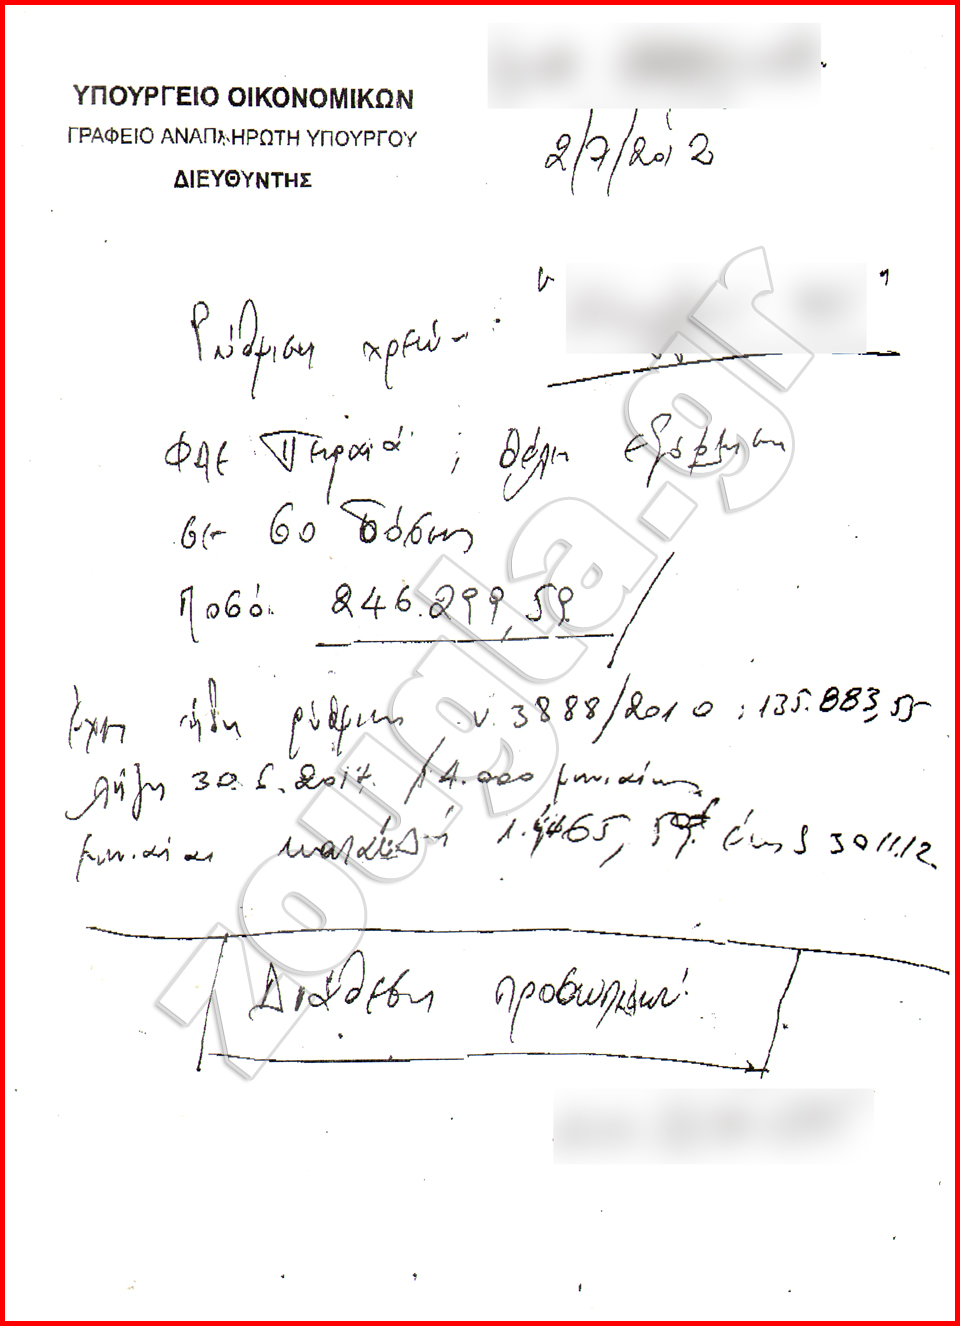 ΥΠΟΥΡΓΕΙΟ ΟΙΚΟΝΟΜΙΚΩΝ
ΓΡΑΦΕΙΟ ΑΝΑΠΛΗΡΩΤΗ ΥΠΟΥΡΓΟΥ
ΔΙΕΥΘΥΝΤΗΣ
2/7/2012
Ρύθμιση χρεών:
ΦΑΕ Πειραιά; θέλει εξόφληση
σε 60 δόσεις
Ποσό: 246.299,59
έχει ήδη ρύθμιση ν. 3888/2010: 135.883,55
λήξη 30.5.2017. /4.000 μηνιαίως
μηνιαία καταβολή έως 30.11.12.
Διάθεση προσωπικού
zougla.gr